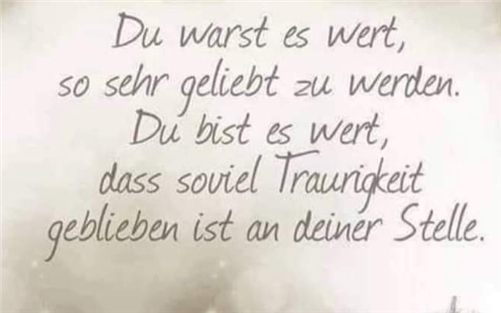 Du warst es wert,
so sehr geliebt zu werden.
Du bist es wert,
dass soviel Traurigkeit
geblieben ist an deiner Stelle.